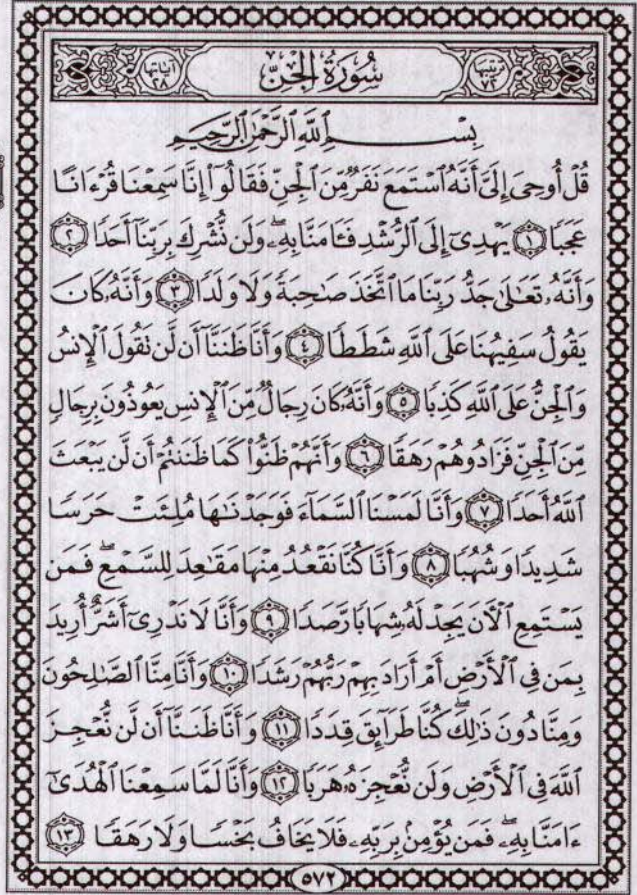 ترتيبها ٧٢ سُورَةُ الجِنِّ آياتها ٢٨
بِسْمِ ٱللَّهِ ٱلرَّحْمَٰنِ ٱلرَّحِيمِ
قُلْ أُوحِىَ إِلَىَّ أَنَّهُ ٱسْتَمَعَ نَفَرٌ مِّنَ ٱلْجِنِّ فَقَالُوٓا۟ إِنَّا سَمِعْنَا قُرْءَانًا
عَجَبًا ١ يَهْدِىٓ إِلَى ٱلرُّشْدِ فَـَٔامَنَّا بِهِۦ ۖ وَلَن نُّشْرِكَ بِرَبِّنَآ أَحَدًا ٢
وَأَنَّهُۥ تَعَٰلَىٰ جَدُّ رَبِّنَا مَا ٱتَّخَذَ صَٰحِبَةً وَلَا وَلَدًا ٣ وَأَنَّهُۥ كَانَ
يَقُولُ سَفِيهُنَا عَلَى ٱللَّهِ شَطَطًا ٤ وَأَنَّا ظَنَنَّآ أَن لَّن تَقُولَ ٱلْإِنسُ
وَٱلْجِنُّ عَلَى ٱللَّهِ كَذِبًا ٥ وَأَنَّهُۥ كَانَ رِجَالٌ مِّنَ ٱلْإِنسِ يَعُوذُونَ بِرِجَالٍ
مِّنَ ٱلْجِنِّ فَزَادُوهُمْ رَهَقًا ٦ وَأَنَّهُمْ ظَنُّوا۟ كَمَا ظَنَنتُمْ أَن لَّن يَبْعَثَ
ٱللَّهُ أَحَدًا ٧ وَأَنَّا لَمَسْنَا ٱلسَّمَآءَ فَوَجَدْنَٰهَا مُلِئَتْ حَرَسًا
شَدِيدًا وَشُهُبًا ٨ وَأَنَّا كُنَّا نَقْعُدُ مِنْهَا مَقَٰعِدَ لِلسَّمْعِ ۖ فَمَن
يَسْتَمِعِ ٱلْـَٔانَ يَجِدْ لَهُۥ شِهَابًا رَّصَدًا ٩ وَأَنَّا لَا نَدْرِىٓ أَشَرٌّ أُرِيدَ
بِمَن فِى ٱلْأَرْضِ أَمْ أَرَادَ بِهِمْ رَبُّهُمْ رَشَدًا ١٠ وَأَنَّا مِنَّا ٱلصَّٰلِحُونَ
وَمِنَّا دُونَ ذَٰلِكَ ۖ كُنَّا طَرَآئِقَ قِدَدًا ١١ وَأَنَّا ظَنَنَّآ أَن لَّن نُّعْجِزَ
ٱللَّهَ فِى ٱلْأَرْضِ وَلَن نُّعْجِزَهُۥ هَرَبًا ١٢ وَأَنَّا لَمَّا سَمِعْنَا ٱلْهُدَىٰٓ
ءَامَنَّا بِهِۦ ۖ فَمَن يُؤْمِنۢ بِرَبِّهِۦ فَلَا يَخَافُ بَخْسًا وَلَا رَهَقًا ١٣
٥٧٢